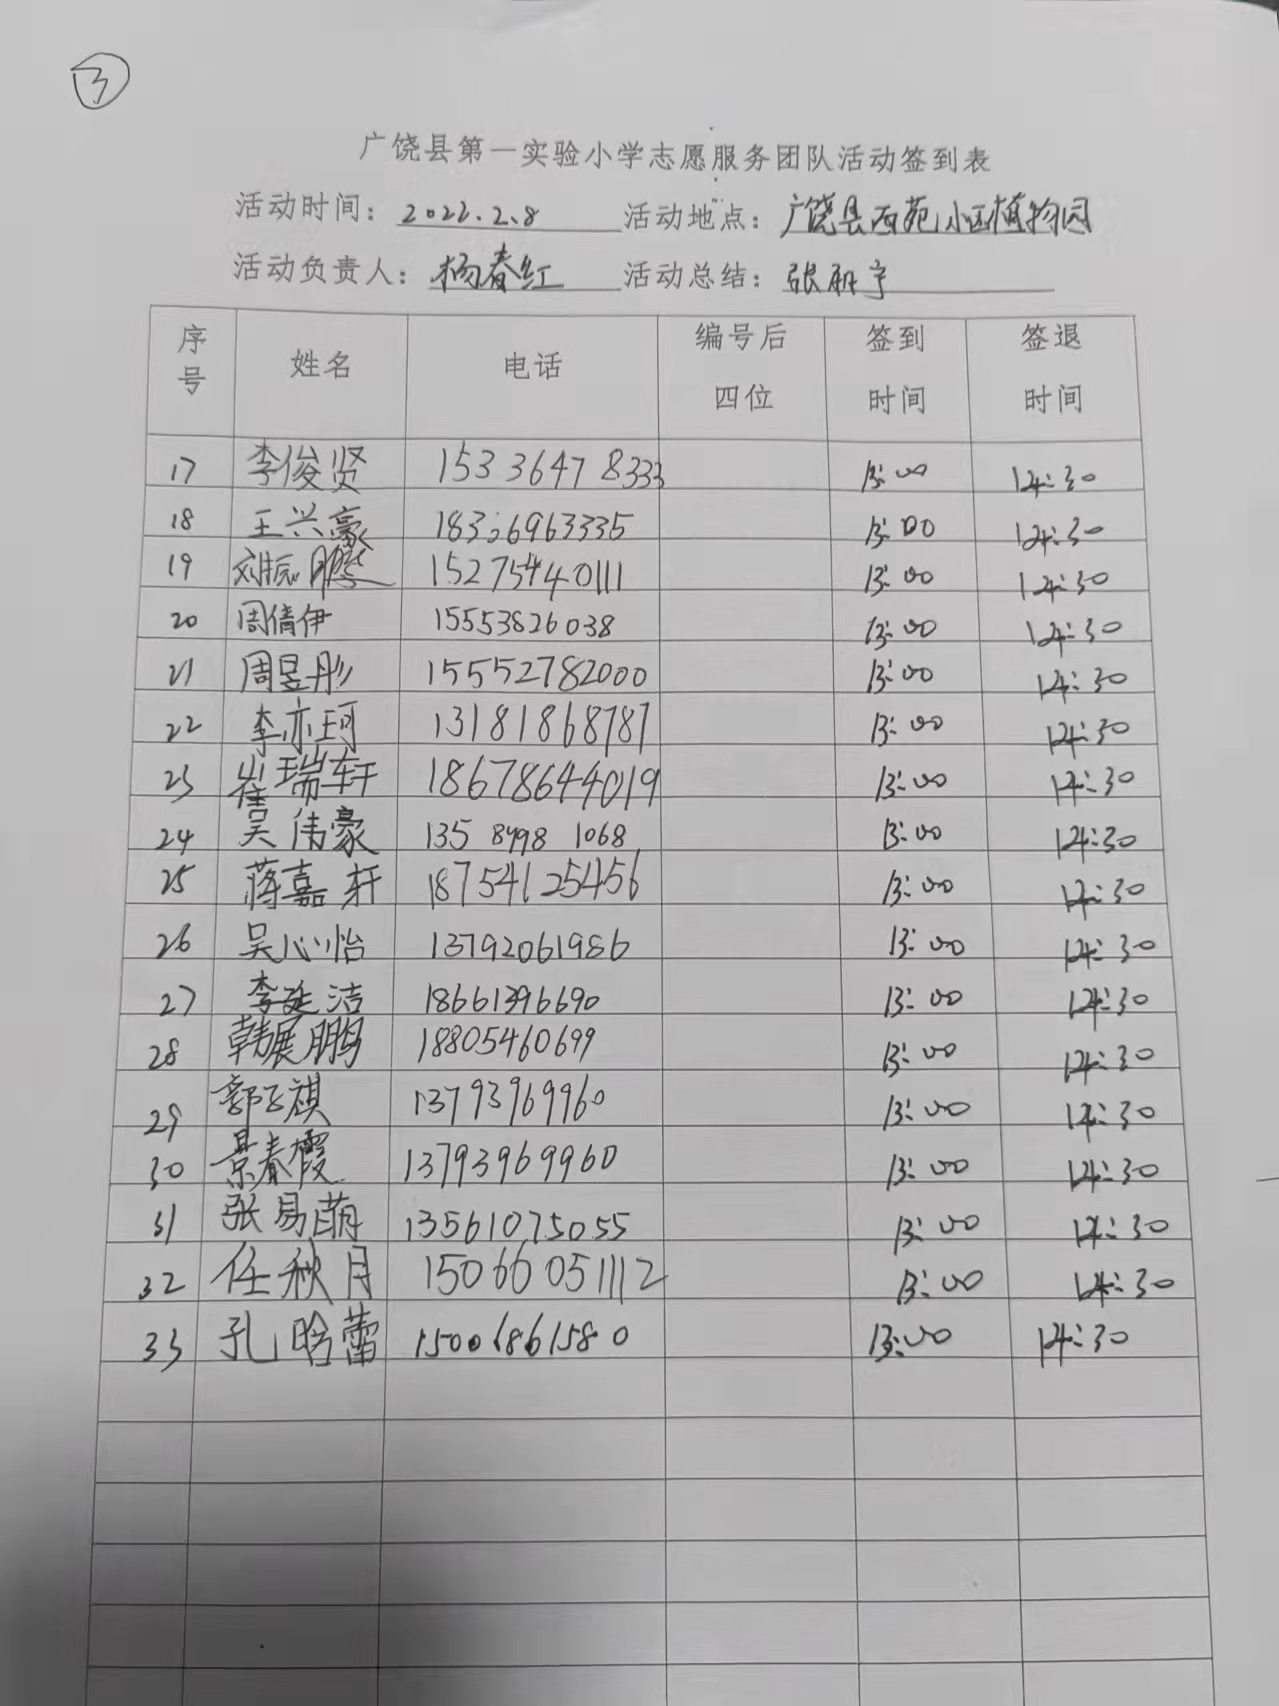 ③
广饶县第一实验小学志愿服务团队活动签到表
活动时间：2022.2.8 活动地点：广饶县西苑小区植物园
活动负责人：杨春红 活动总结：张翔宇
序号 姓名 电话 编号后四位 签到时间 签退时间
17 李俊贤 15336478333 13:00 14:30
18 王兴豪 18336963335 13:00 14:30
19 刘振鹏 15275440111 13:00 14:30
20 周倩伊 15553826038 13:00 14:30
21 周昱彤 15552782000 13:00 14:30
22 李亦珂 13181868787 13:00 14:30
23 崔瑞轩 18678644019 13:00 14:30
24 吴伟豪 135 8998 1068 13:00 14:30
25 蒋嘉轩 18754125456 13:00 14:30
26 吴心怡 13792061986 13:00 14:30
27 李延洁 18661396690 13:00 14:30
28 韩展鹏 18805460699 13:00 14:30
29 郭子祺 13793969960 13:00 14:30
30 景春霞 13793969960 13:00 14:30
31 张易萌 13561075055 13:00 14:30
32 任秋月 15066051112 13:00 14:30
33 孔晗蕾 15006861580 13:00 14:30